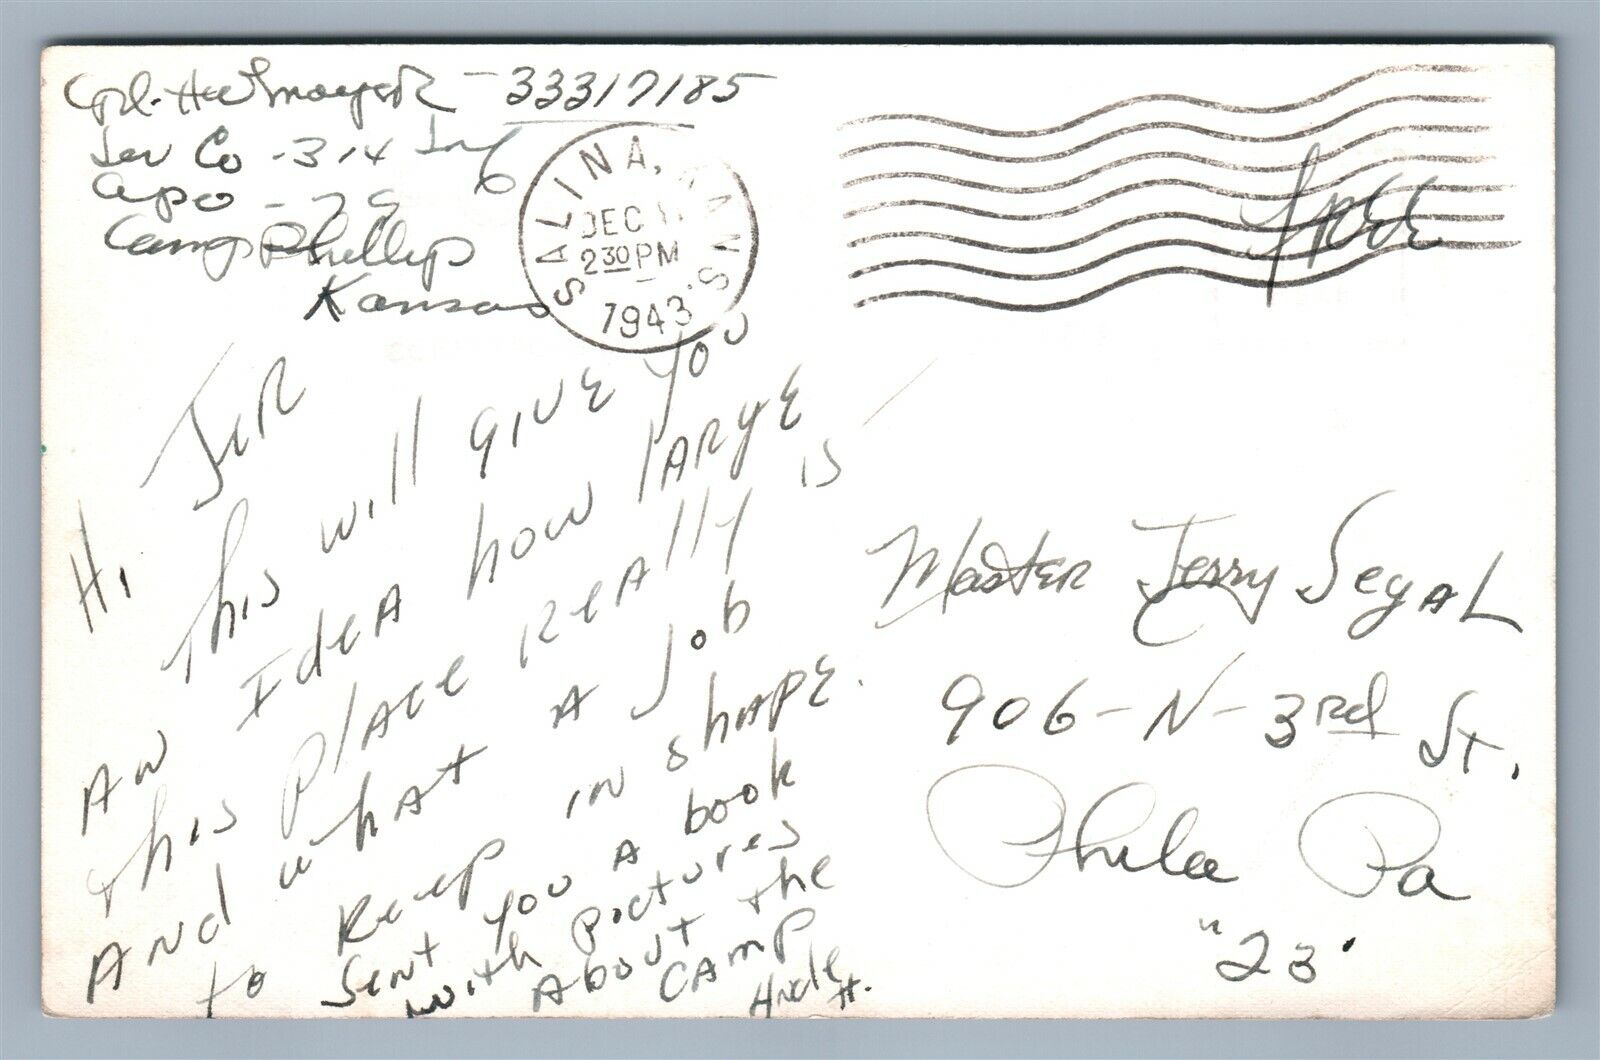 Cpl. - 33317185
Ser Co - 314 Inf
APO - 79
Camp Phillips
Kansas
SALINA, KANS.
DEC
2 30 PM
1943
Free
Hi, Jer
This will give you
an Idea how large
this place really is
And what a job
to keep in shape.
Sent you a book
with pictures
About the
CAMP
H.
Master Jerry Segal
906-N-3rd St.
Phila Pa
"23"